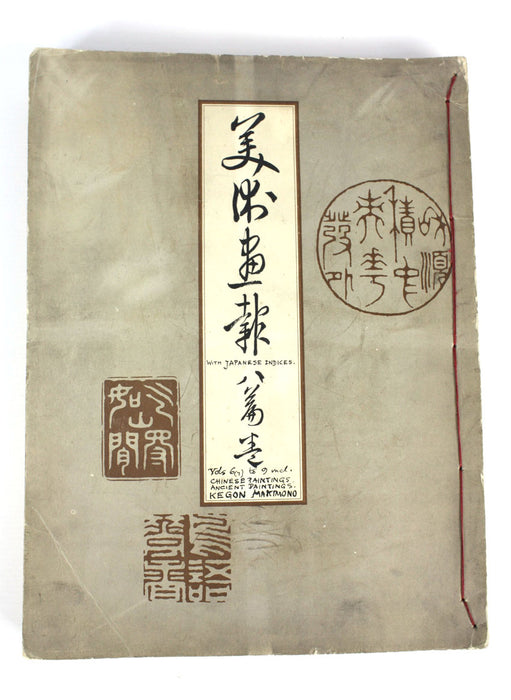 美術畫報
WITH JAPANESE INDICES.
八篇巻
Vols 6(7) to 9 incl.
CHINESE PAINTINGS
ANCIENT PAINTINGS.
KEGON MAKIMONO
和順
積中
英華
發外